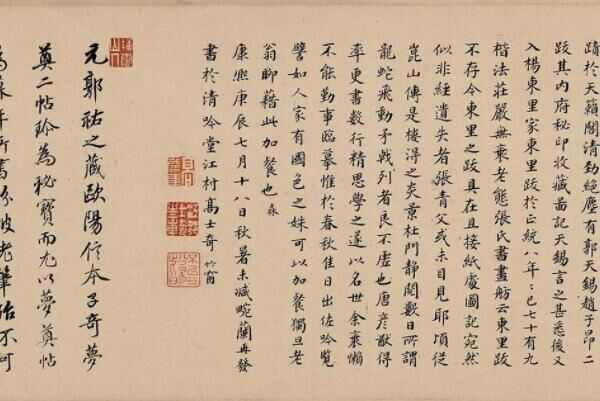 蹟於天籟閣清勁絕塵有郭天錫趙子昂二
跋其内府秘印收藏啚記天錫言之甚悉後又
入楊東里家東里跋於正統八年:已七十有九
楷法莊嚴無衰老態張氏書畫舫云東里跋
不存今東里之跋具在且接紙處圖記宛然
似非經遺失者張青父或未目見耶頃從
崑山傳是樓得之炎景杜門靜閱數日所謂
龍蛇飛動矛戟列者良不虛也唐彥猷得
率更書數行精思學之遂以名世余衰懶
不能勤事臨摹惟於春秋佳日出佐吟覽
譬如人家有國色之姝可以加餐獨旦老
翁聊藉此加餐也
康熙庚辰七月十八日秋暑未減畹蘭再發
書於清吟堂江村高士奇 竹窗
元郭祐之藏歐陽信本子奇夢
奠二帖珍為秘寶而尤以夢奠帖
所書 波老筆殆不可